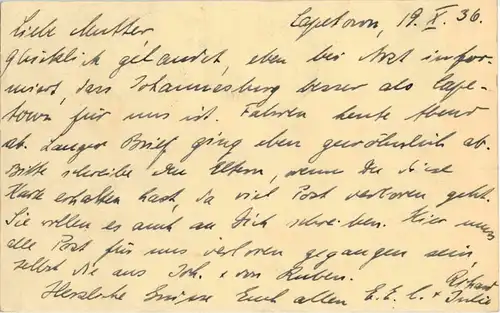 Capetown, 19. X. 36.
Liebe Mutter,
Glücklich gelandet, eben bei Arzt infor-
miert, dass Johannesburg besser als Cape-
town für uns ist. Fahren heute Abend
ab. Langer Brief ging eben gewöhnlich ab.
Bitte schreibe den Eltern, wenn Du diese
Karte erhalten hast, da viel Post verloren geht.
Sie wollen es auch an Dich schreiben. Hier muss
alle Post für uns verloren gegangen sein,
selbst die aus Joh. + von Ruben.
Herzliche Grüsse Euch allen E. E. C. + Julie
Richard